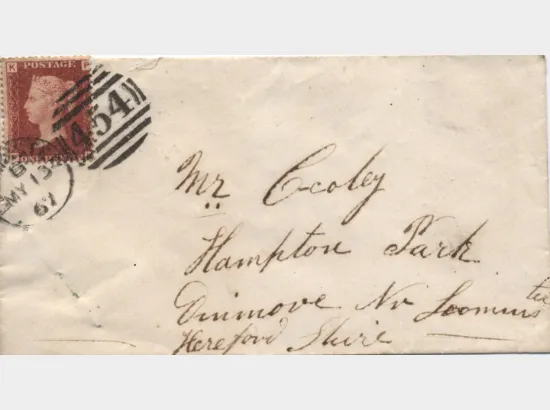 K
POSTAGE
454
MY 13
67
Mr Cooley
Hampton Park
Dinmove Nr Leomins
ter
Hereford Shire